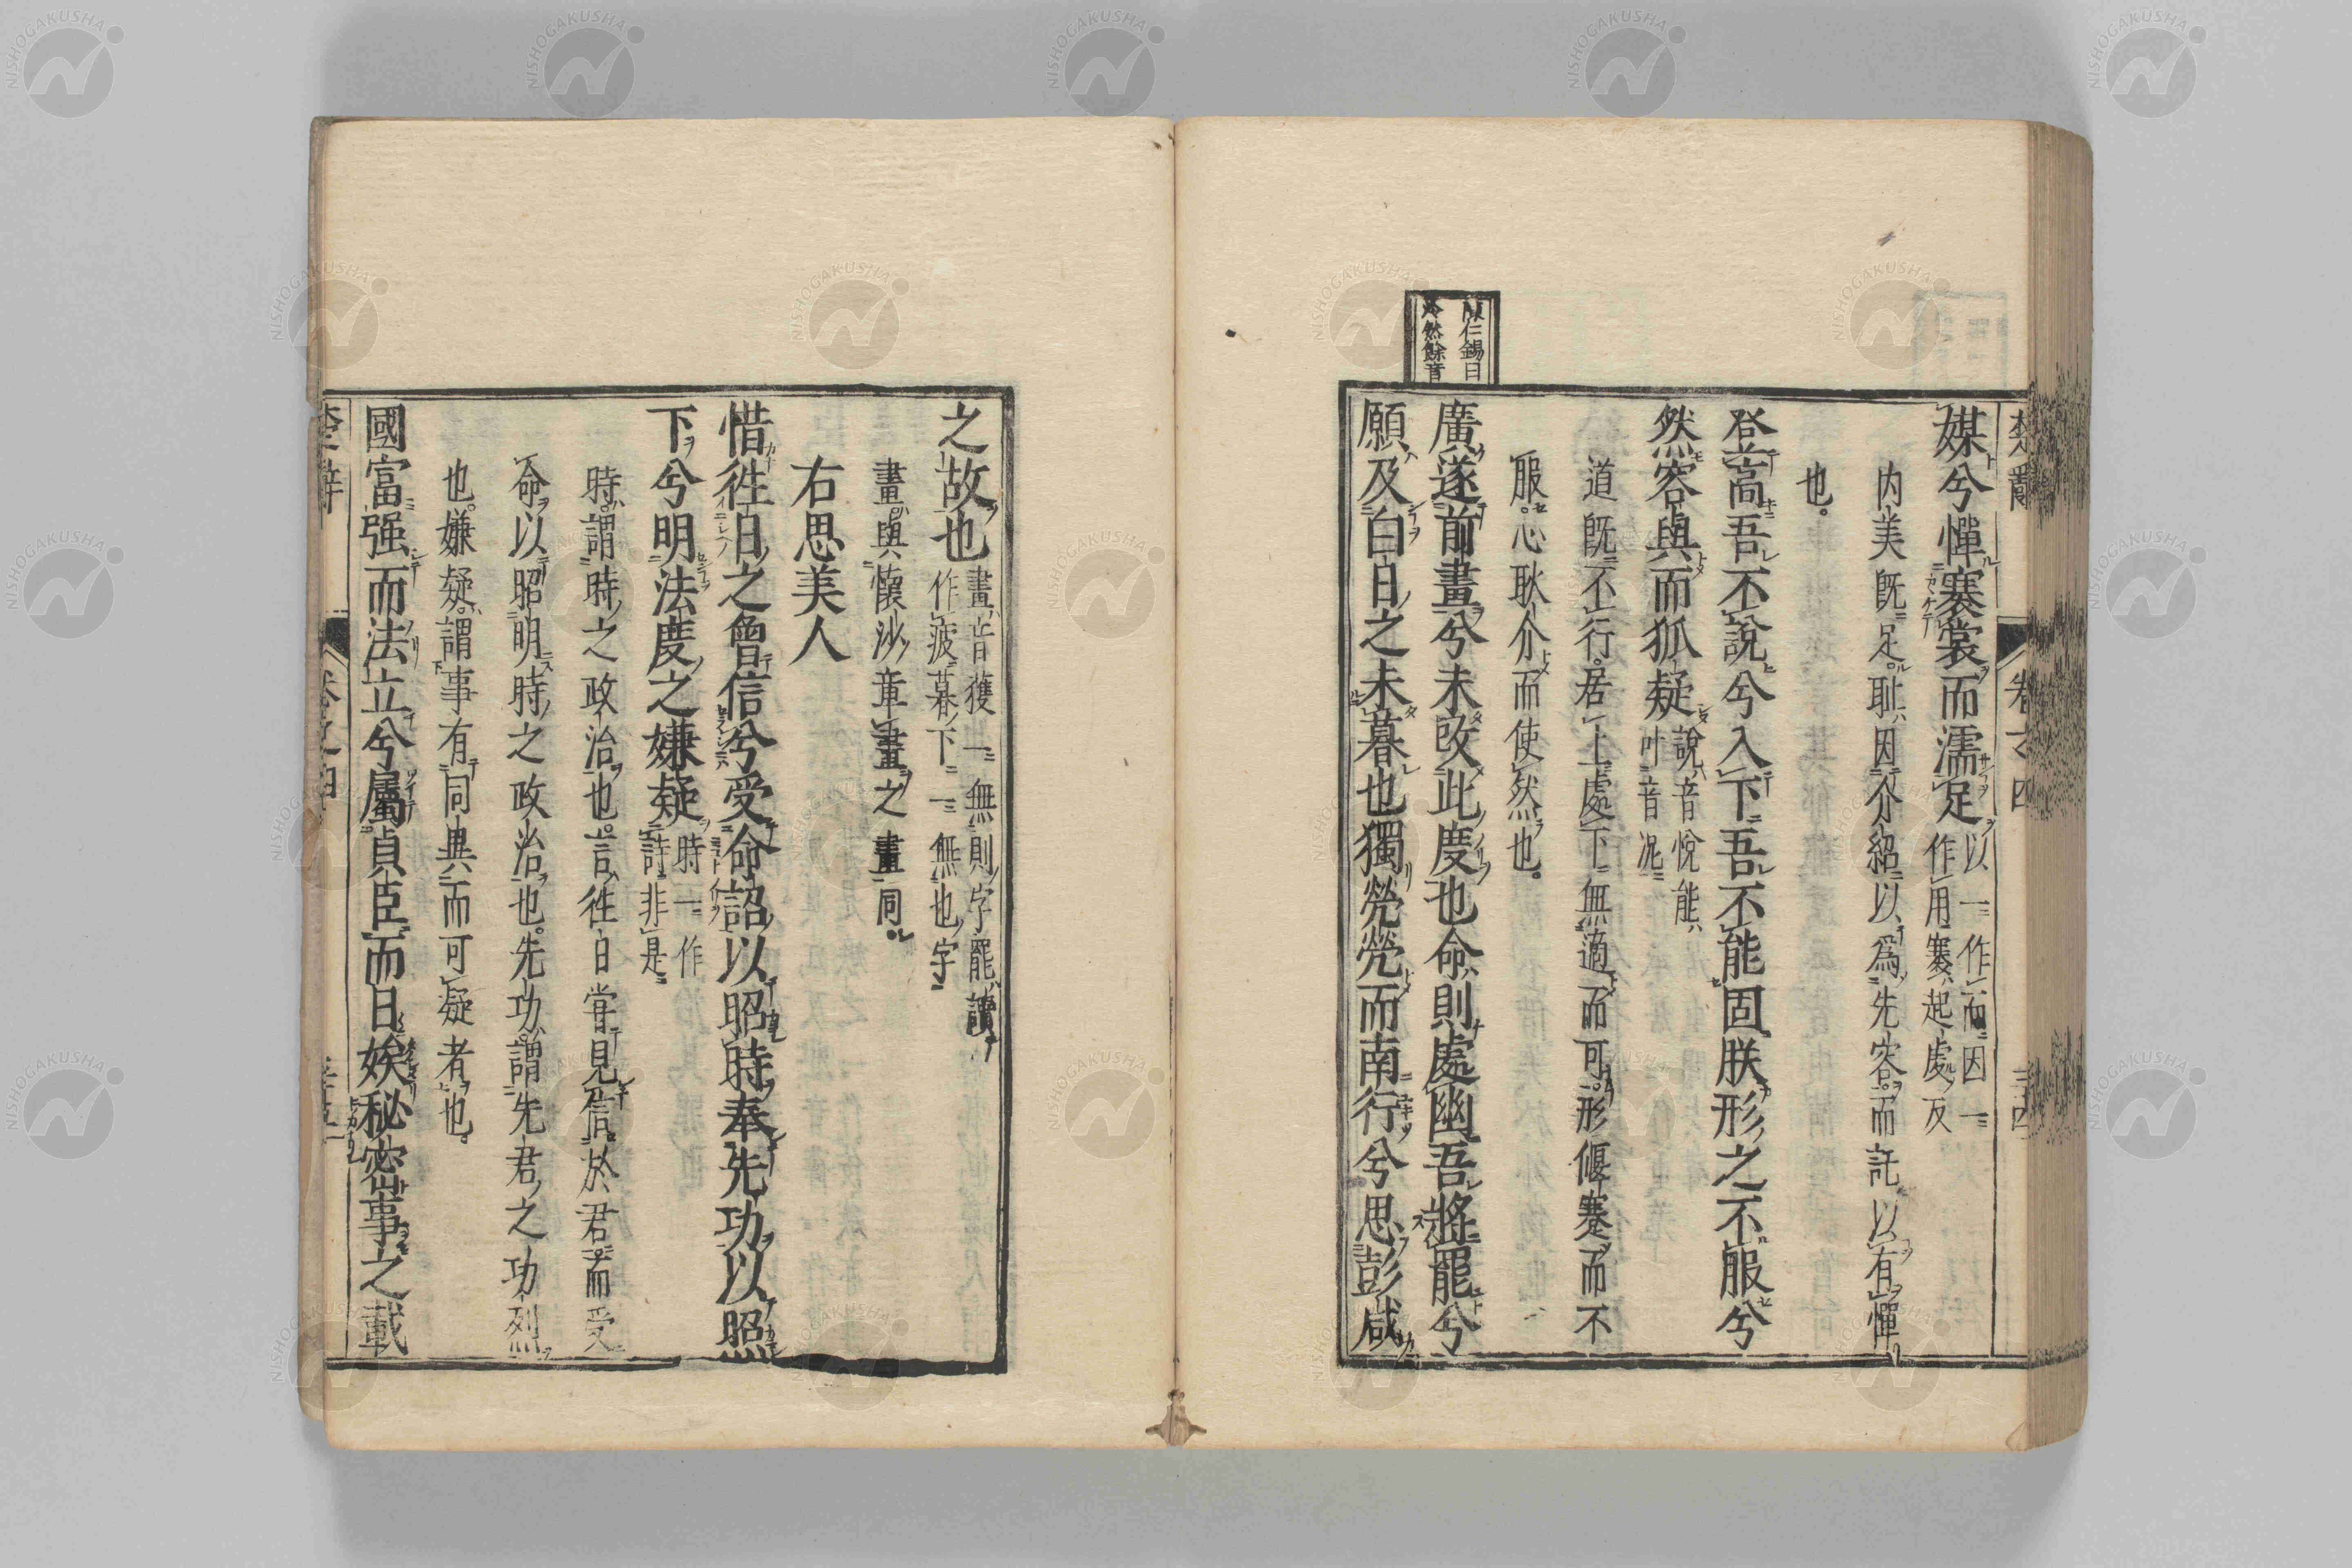 楚辭 卷之四 三十四
媒兮憚褰裳而濡足以一作而因一
作用褰起處反
内美既足耻因介紹以爲先容而託以有憚
也。
登高吾不說兮入下吾不能固朕形之不服兮
然容與而狐疑說音悅能
叶音泥
道既不行居上處下無適而可形偃蹇而不
服。心耿介而使然也。
陳仁錫曰
冷然餘音
廣遂前畫兮未改此度也命則處幽吾將罷兮
願及白日之未暮也獨煢煢而南行兮思彭咸
之故也畫音獲一無則字罷讀
作疲暮下一無也字
畫與懷沙章畫之畫同。
右思美人
惜往日之曾信兮受命詔以昭時奉先功以照
下兮明法度之嫌疑時一作
詩非是
時謂時之政治也。言往日嘗見信於君而受
命以昭明時之政治也。先功謂先君之功烈
也。嫌疑謂事有同異而可疑者也。
國富强而法立兮屬貞臣而日娭秘密事之載
楚辭 卷之四